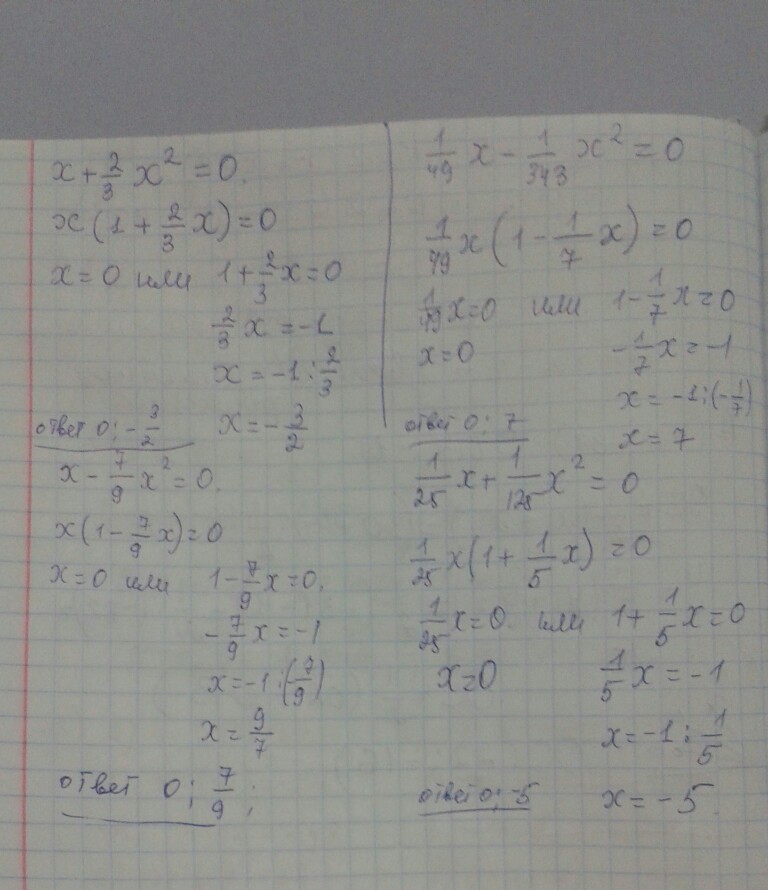 x + 2/3 x² = 0.
x(1 + 2/3 x) = 0
x = 0 или 1 + 2/3 x = 0
2/3 x = -1
x = -1 : 2/3
x = - 3/2
ответ 0; - 3/2
x - 7/9 x² = 0.
x(1 - 7/9 x) = 0
x = 0 или 1 - 7/9 x = 0.
- 7/9 x = -1
x = -1 : (- 7/9)
x = 9/7
ответ 0; 7/9;
1/49 x - 1/343 x² = 0
1/49 x (1 - 1/7 x) = 0
1/49 x = 0 или 1 - 1/7 x = 0
x = 0 - 1/7 x = -1
x = -1 : (- 1/7)
ответ 0; 7 x = 7
1/25 x + 1/125 x² = 0
1/25 x (1 + 1/5 x) = 0
1/25 x = 0. или 1 + 1/5 x = 0
x = 0 1/5 x = -1
x = -1 : 1/5
ответ 0; -5 x = -5.